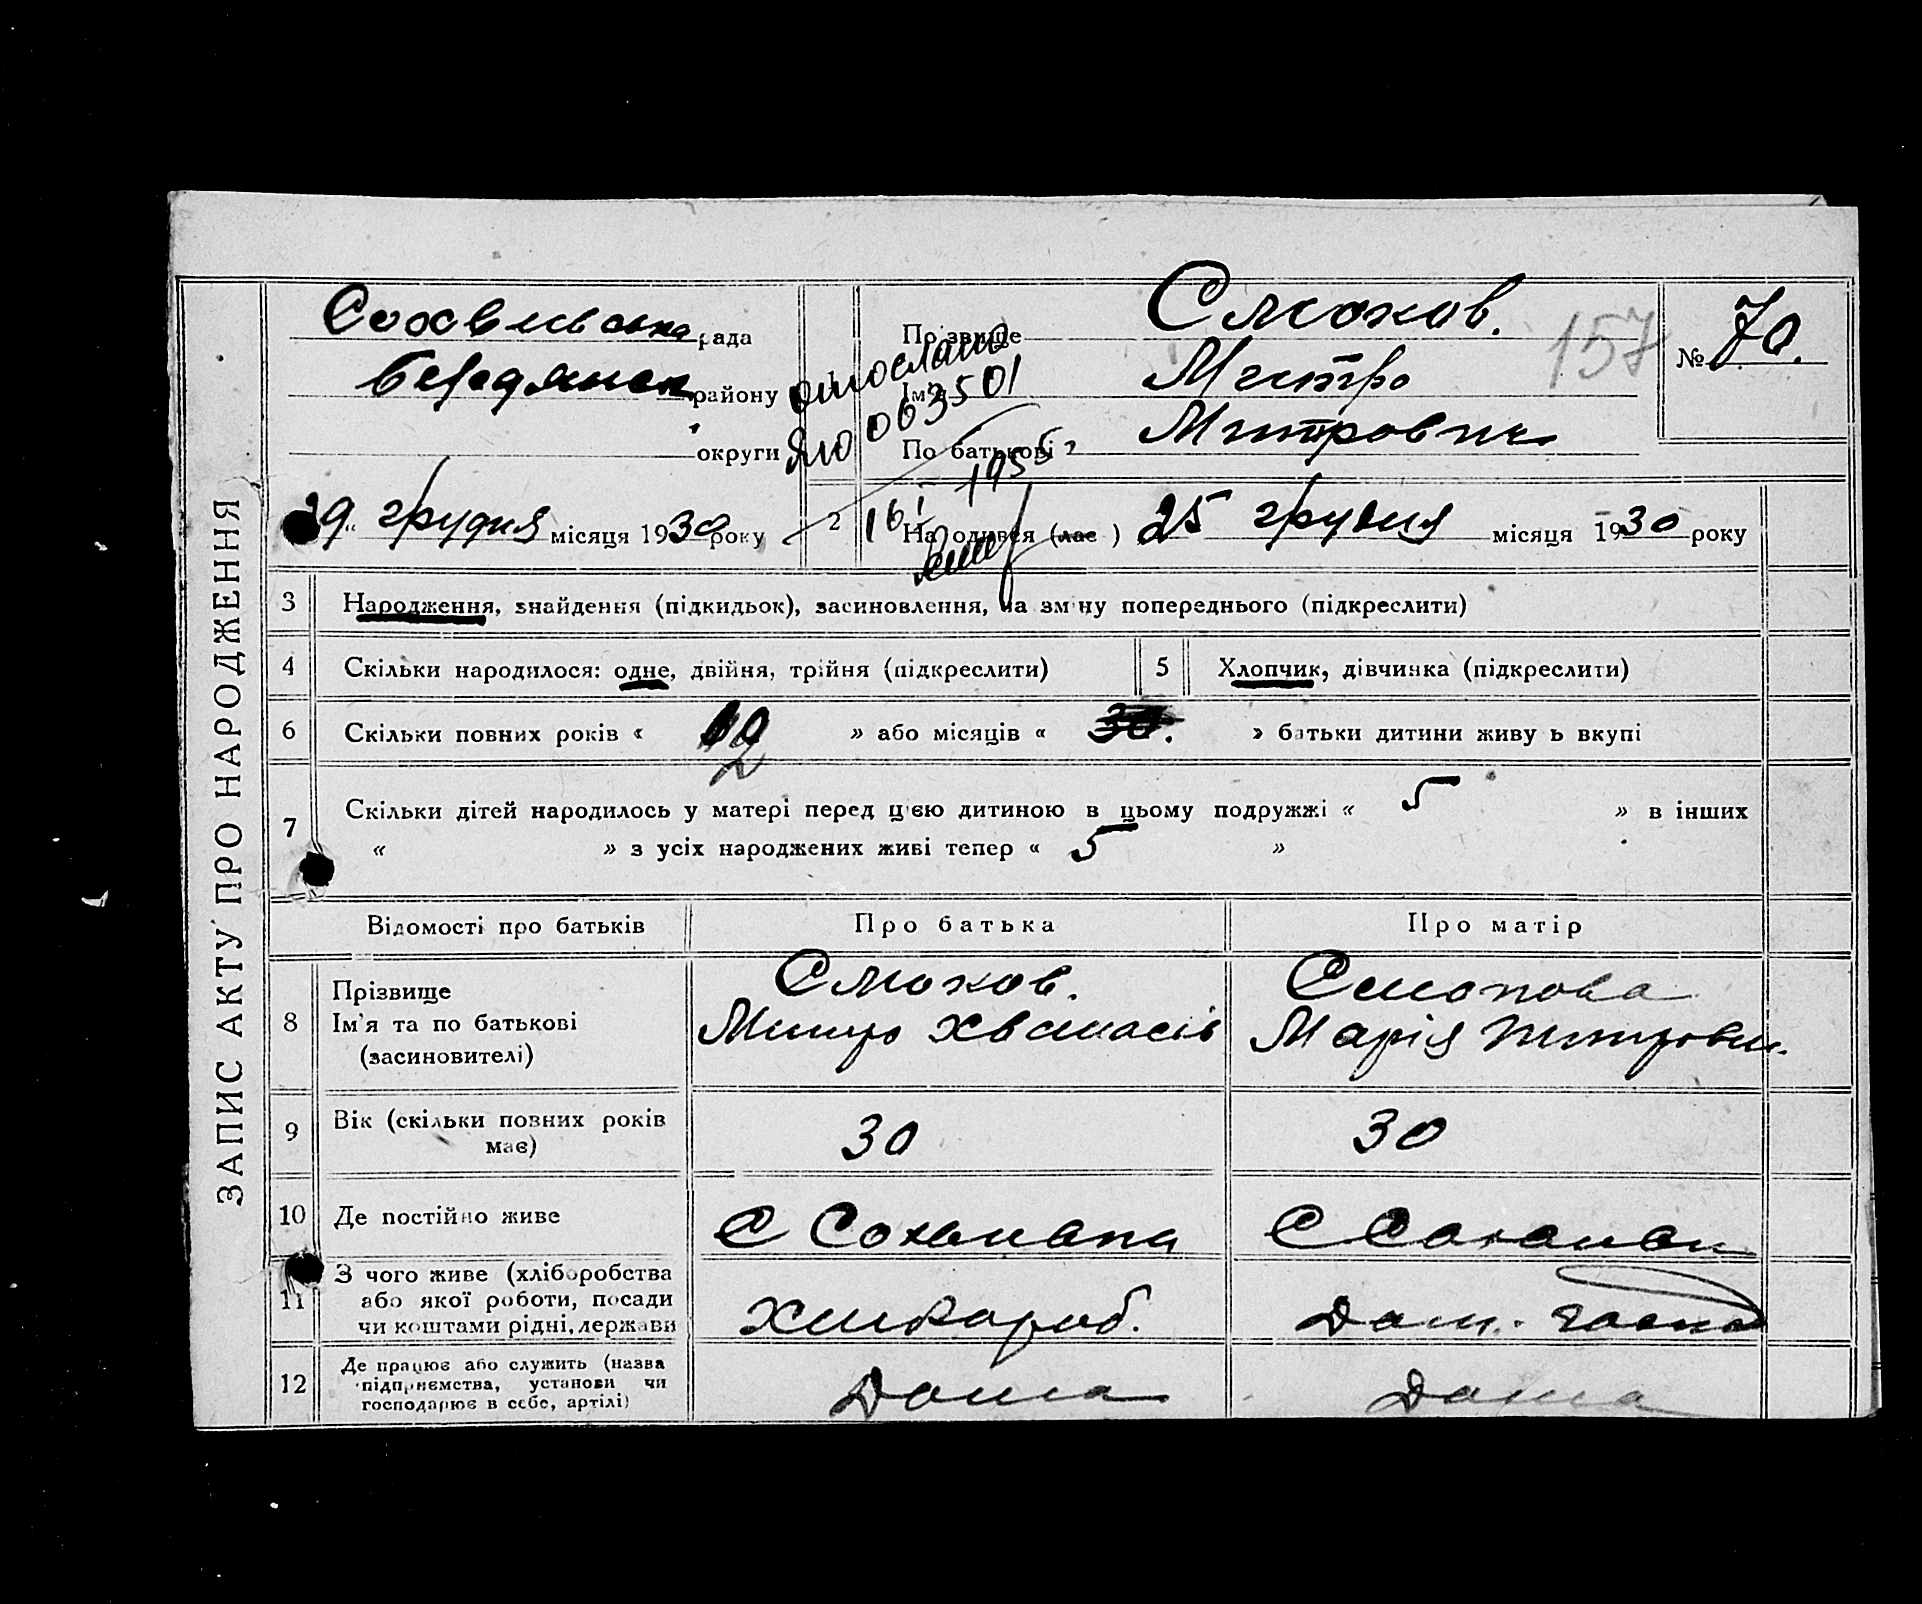 ЗАПИС АКТУ ПРО НАРОДЖЕННЯ
рада
Бердянськ району
округи
29 грудня місяця 1930 року
Прізвище
Ім'я Митро
По батькові Митрович
№ 70.
157
ЯЮ 063501
16/I 1955 г
2 Народився (лас) 25 грудня місяця 1930 року
3 Народження, знайдення (підкидьок), засиновлення, на зміну попереднього (підкреслити)
4 Скільки народилося: одне, двійня, трійня (підкреслити)
5 Хлопчик, дівчинка (підкреслити)
6 Скільки повних років « » або місяців « 30. » батьки дитини живуть вкупі
7 Скільки дітей народилось у матері перед цією дитиною в цьому подружжі « 5 » в інших
« » з усіх народжених живі тепер « 5 »
Відомості про батьків Про батька Про матір
8 Прізвище
Ім'я та по батькові Митро Марія
(засиновителі)
9 Вік (скільки повних років має) 30 30
10 Де постійно живе С С
11 З чого живе (хліборобства
або якої роботи, посади
чи коштами рідні, держави Хлібороб. Дом. госпо
12 Де працює або служить (назва
підприємства, установи чи
господарює в себе, артілі) Дома Дома